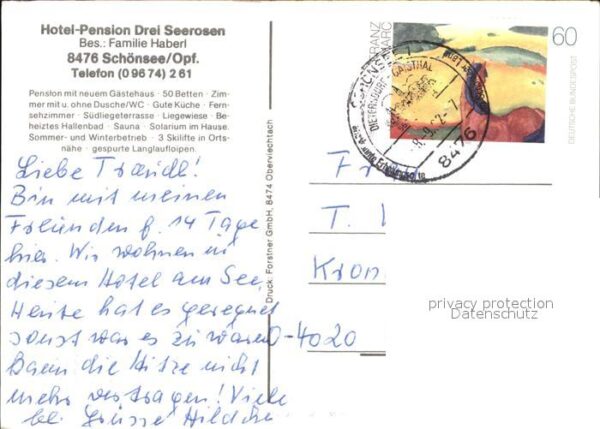 Hotel-Pension Drei Seerosen
Bes.: Familie Haberl
8476 Schönsee/Opf.
Telefon (0 96 74) 2 61
Pension mit neuem Gästehaus · 50 Betten · Zim-
mer mit u. ohne Dusche/WC · Gute Küche · Fern-
sehzimmer · Südliegeterrasse · Liegewiese · Be-
heiztes Hallenbad · Sauna · Solarium im Hause.
Sommer- und Winterbetrieb · 3 Skilifte in Orts-
nähe · gespurte Langlaufloipen.
Liebe Traudl!
Bin mit meinen
Freunden f. 14 Tage
hier. Wir wohnen in
diesem Hotel am See.
Heute hat es geregnet
sonst war es zu warm
die Hitze nicht
mehr vertragen! Viele
Grüsse
Druck: Forstner GmbH, 8474 Oberviechtach
FRANZ
MARC
60
DEUTSCHE BUNDESPOST
SCHÖNSEE 1
DIETERSDORF GAISTHAL
8476
Fr
T.
Kron
D-4020
privacy protection
Datenschutz